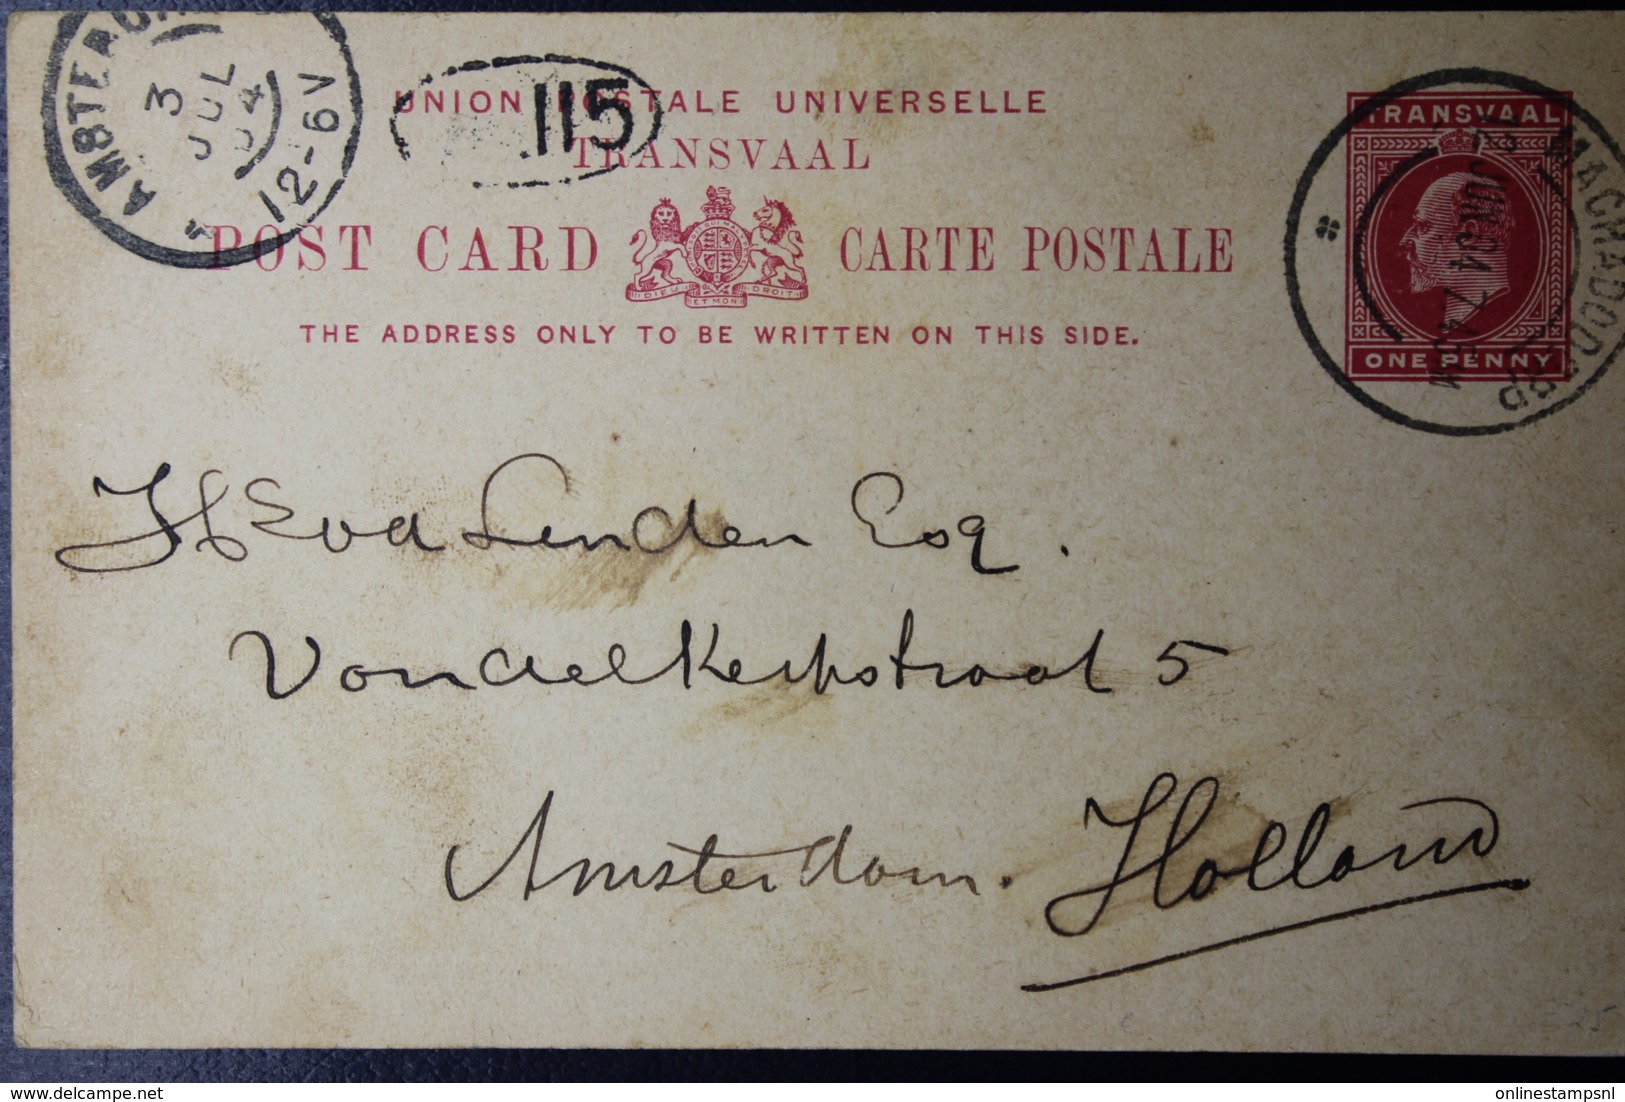 AMSTERDAM
3
JUL
04
12-6V
115
UNION POSTALE UNIVERSELLE
TRANSVAAL
POST CARD CARTE POSTALE
DIEU ET MON DROIT
THE ADDRESS ONLY TO BE WRITTEN ON THIS SIDE.
TRANSVAAL
ONE PENNY
MACHADODORP
JUN 04
H E vd Linden Esq.
Vondelkerkstraat 5
Amsterdam. Holland
onlinestampsnl